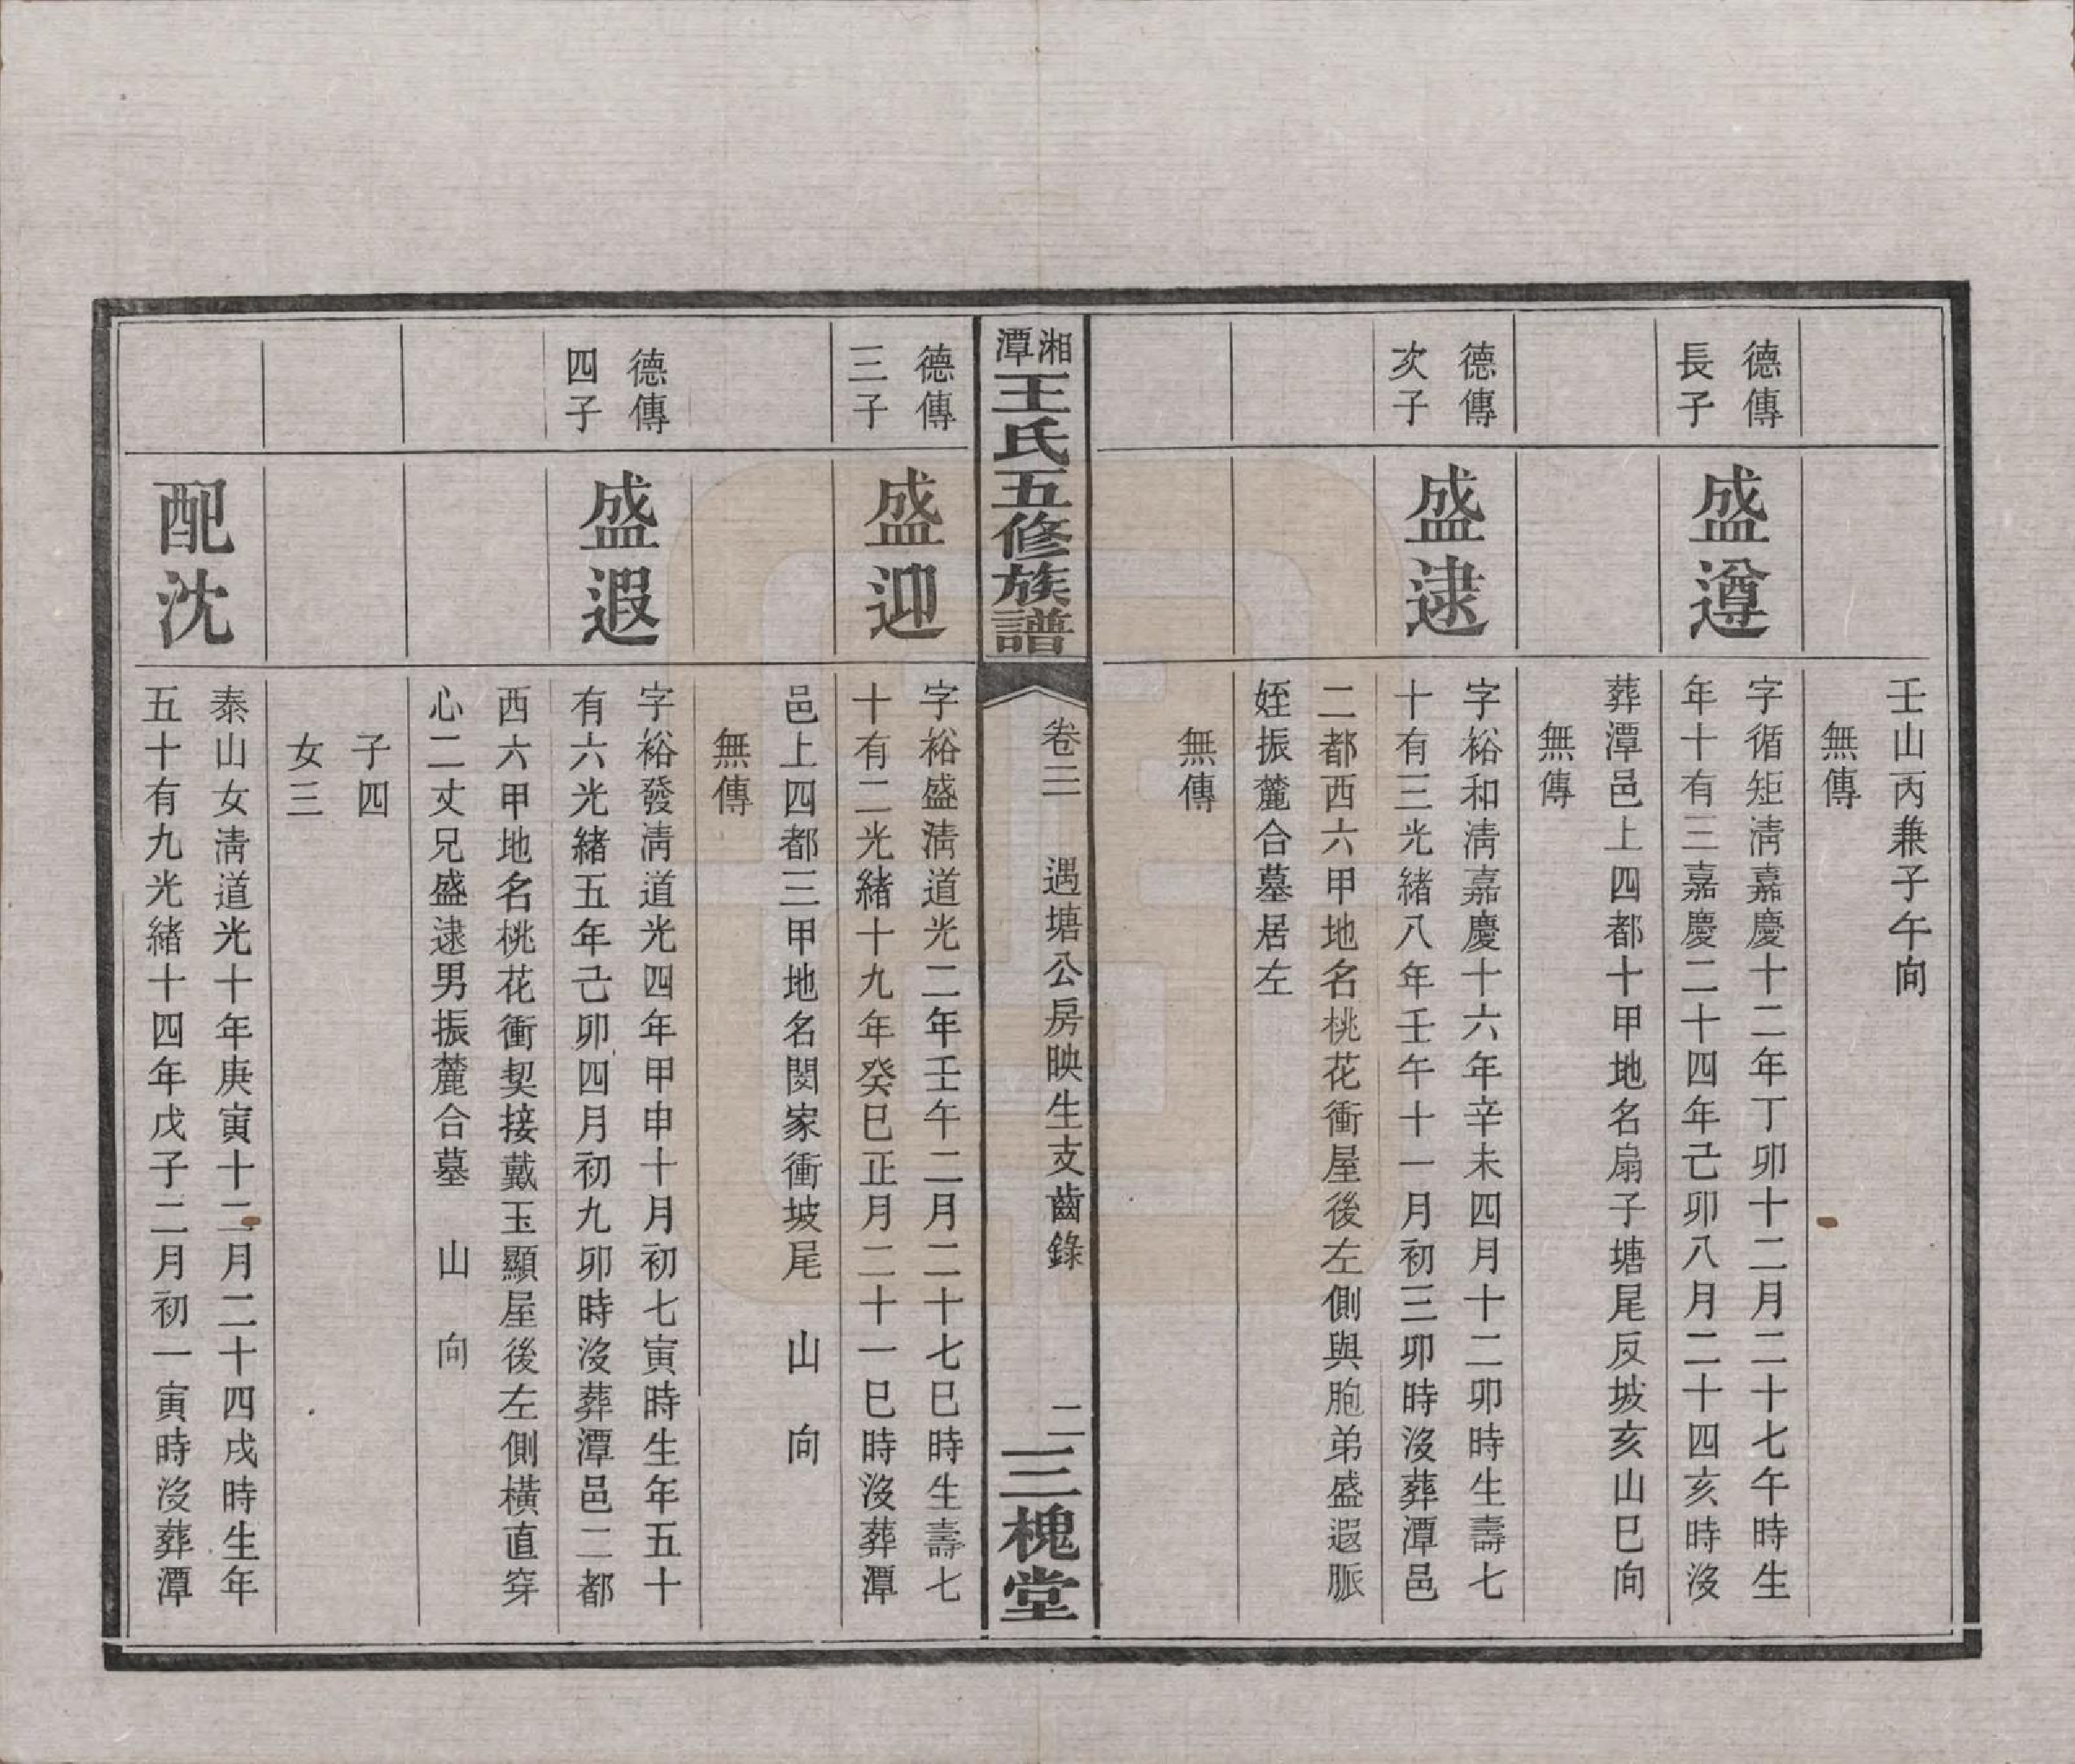 壬山丙兼子午向
無傳
德傳
長子
盛遵
字循矩淸嘉慶十二年丁卯十二月二十七午時生
年十有三嘉慶二十四年己卯八月二十四亥時沒
葬潭邑上四都十甲地名扇子塘尾反坡亥山巳向
無傳
德傳
次子
盛逮
字裕和淸嘉慶十六年辛未四月十二卯時生壽七
十有三光緒八年壬午十一月初三卯時沒葬潭邑
二都西六甲地名桃花衝屋後左側與胞弟盛遐脈
姪振麓合墓居左
無傳
湘潭王氏五修族譜
卷三
遇塘公房映生支齒錄
二
三槐堂
德傳
三子
盛迎
字裕盛淸道光二年壬午二月二十七巳時生壽七
十有二光緒十九年癸巳正月二十一巳時沒葬潭
邑上四都三甲地名閔家衝坡尾 山 向
無傳
德傳
四子
盛遐
字裕發淸道光四年甲申十月初七寅時生年五十
有六光緒五年己卯四月初九卯時沒葬潭邑二都
西六甲地名桃花衝契接戴玉顯屋後左側橫直穿
心二丈兄盛逮男振麓合墓 山 向
子四
女三
配沈
泰山女淸道光十年庚寅十二月二十四戌時生年
五十有九光緒十四年戊子二月初一寅時沒葬潭